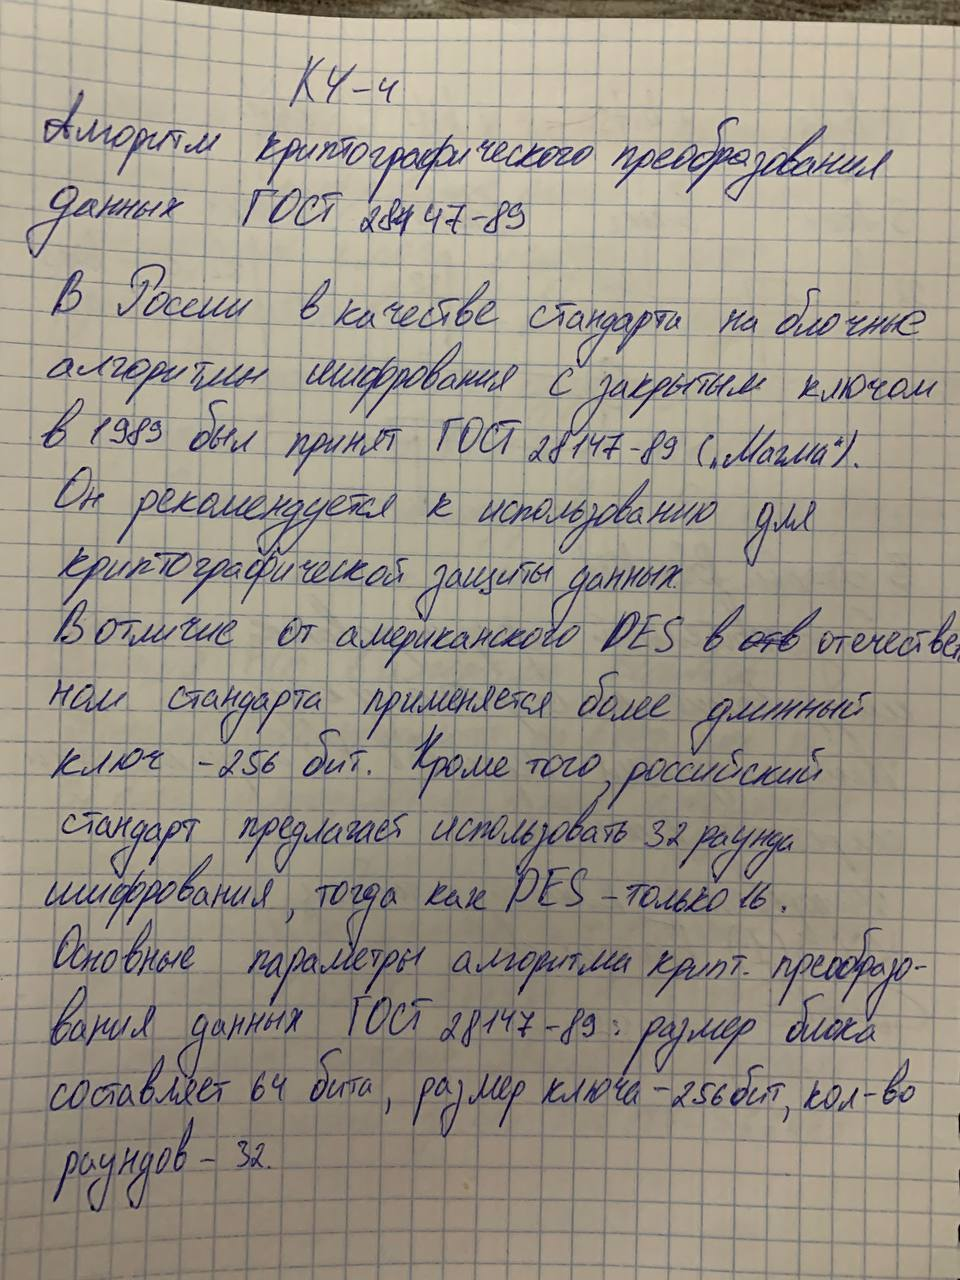 КЧ-4
Алгоритм криптографического преобразования
данных ГОСТ 28147-89
В России в качестве стандарта на блочные
алгоритмы шифрования с закрытым ключом
в 1989 был принят ГОСТ 28147-89 („Магма“).
Он рекомендуется к использованию для
криптографической защиты данных.
В отличие от американского DES в отв отечествен
ном стандарта применяется более длинный
ключ - 256 бит. Кроме того, российский
стандарт предлагает использовать 32 раунда
шифрования, тогда как DES - только 16.
Основные параметры алгоритма крипт. преобразо-
вания данных ГОСТ 28147-89: размер блока
составляет 64 бита, размер ключа - 256 бит, кол-во
раундов - 32.